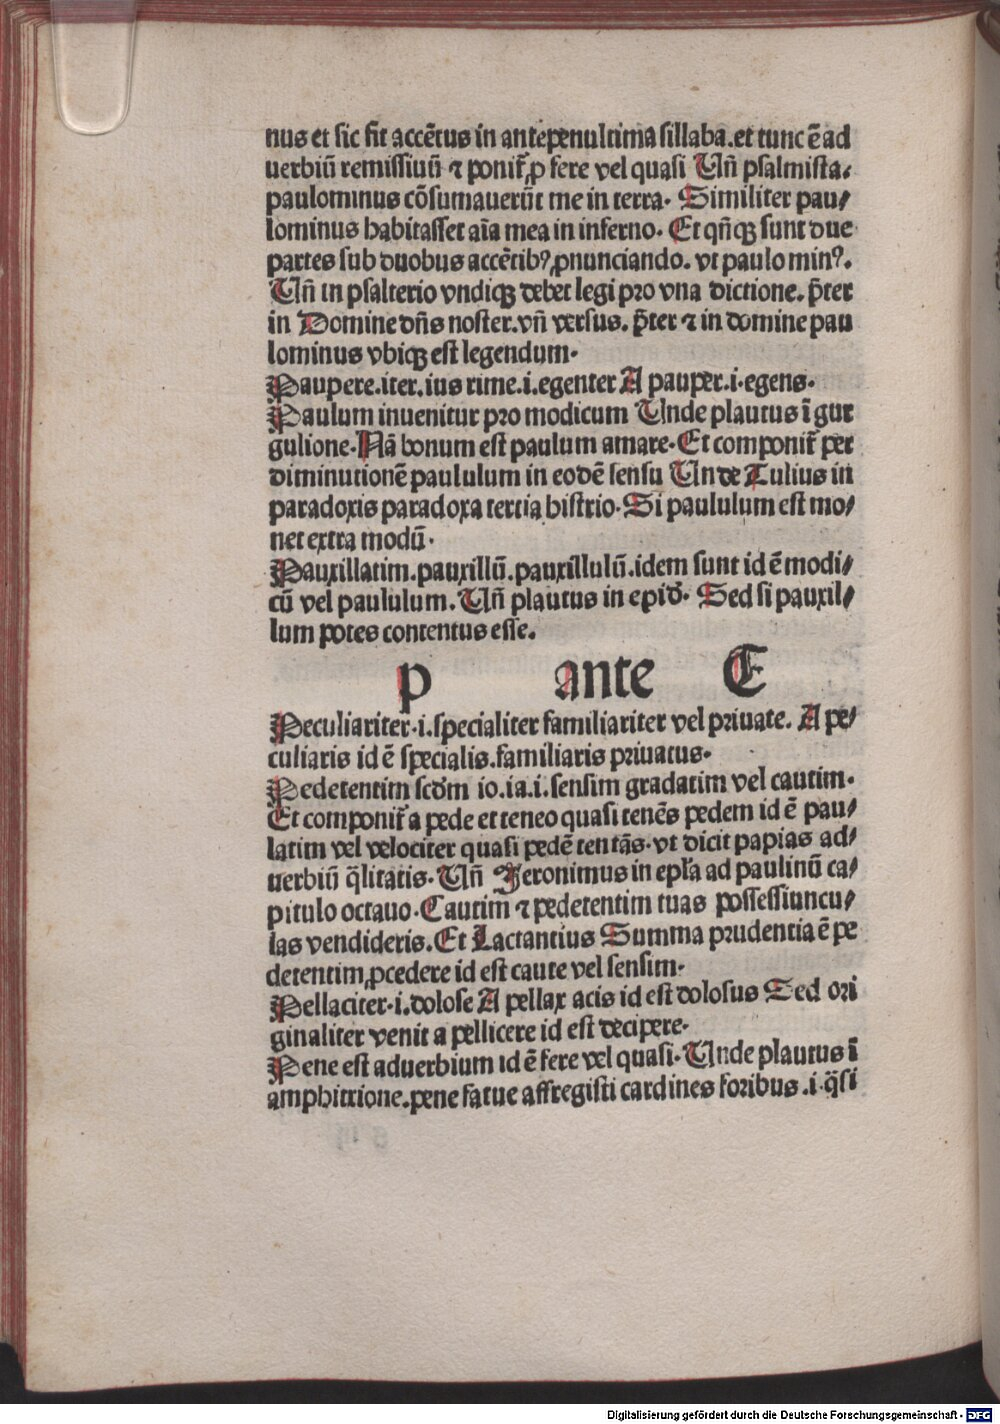 nus et sic fit accētus in antepenultima sillaba.et tunc ē ad
uerbiū remissiuū ⁊ ponit̃ ꝓ fere vel quasi Vñ psalmista.
paulominus cōsumauerūt me in terra. Similiter pau⸗
lominus habitasset aīa mea in inferno. Et qñqꝫ sunt due
partes sub duobus accētibꝰ ꝓnunciando. vt paulo minꝰ.
Vñ in psalterio vndiqꝫ debet legi pro vna dictione. p̄ter
in Domine dñs noster.vñ versus. p̄ter ⁊ in domine pau
lominus vbiqꝫ est legendum.
Paupere.iter.ius rime.i.egenter A pauper.i.egens.
Paulum inuenitur pro modicum Unde plautus ī gur
gulione.Nā bonum est paulum amare.Et componit̃ per
diminutionē paululum in eodē sensu Unde Tulius in
paradoxis paradoxa tertia histrio.Si paululum est mo⸗
net extra modū.
Pauxillatim.pauxillū.pauxillulū.idem sunt id ē modi⸗
cū vel paululum. Vñ plautus in epid̄. Sed si pauxil⸗
lum potes contentus esse.
p ante E
Peculiariter.i.specialiter familiariter vel priuate. A pe⸗
culiaris id ē specialis.familiaris priuatus.
Pedetentim scd̄m io.ia.i.sensim gradatim vel cautim.
Et componit̃ a pede et teneo quasi tenēs pedem id ē pau⸗
latim vel velociter quasi pedē tentās.vt dicit papias ad⸗
uerbiū q̄litatis. Vñ Jeronimus in epl̄a ad paulinū ca⸗
pitulo octauo.Cautim ⁊ pedetentim tuas possessiuncu⸗
las vendideris. Et Lactantius Summa prudentia ē pe
detentim ꝓcedere id est caute vel sensim.
Pellaciter.i.dolose A pellax acis id est dolosus Sed ori
ginaliter venit a pellicere id est decipere.
Pene est aduerbium id ē fere vel quasi. Unde plautus ī
amphitrione.pene fatue affregisti cardines foribus.i.q̄si
Digitalisierung gefördert durch die Deutsche Forschungsgemeinschaft - DFG